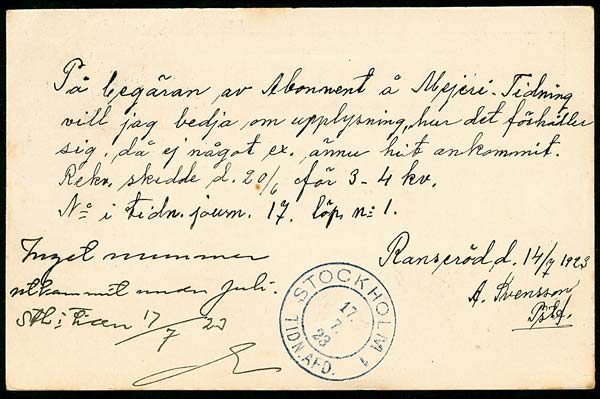 På begäran av Abonnent å Mejeri-Tidning
vill jag bedja om upplysning, hur det förhåller
sig, då ej något ex. ännu hit ankommit.
Rekv. skedde d. 20/6 för 3-4 kv.
No i tidn. journ. 17. löp. n: 1.
Inget nummer
utkommit under Juli.
17/7 23
Ranseröd d. 14/7 1923
A. Svensson
STOCKHOLM 1
17.
7.
23
TIDN.AFD.